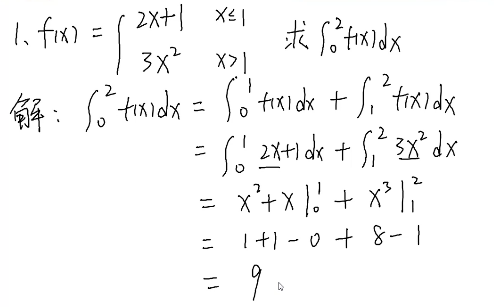 1、f(x) = { 2x+1 x≤1
3x² x>1 求 ∫₀² f(x)dx
解: ∫₀² f(x)dx = ∫₀¹ f(x)dx + ∫₁² f(x)dx
= ∫₀¹ 2x+1 dx + ∫₁² 3x² dx
= x²+x |₀¹ + x³ |₁²
= 1+1-0 + 8-1
= 9